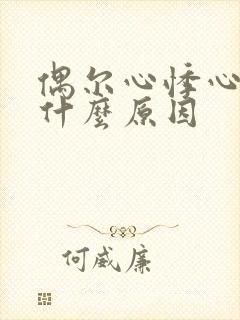 偶尔心悸心
什麼原因
何威廉